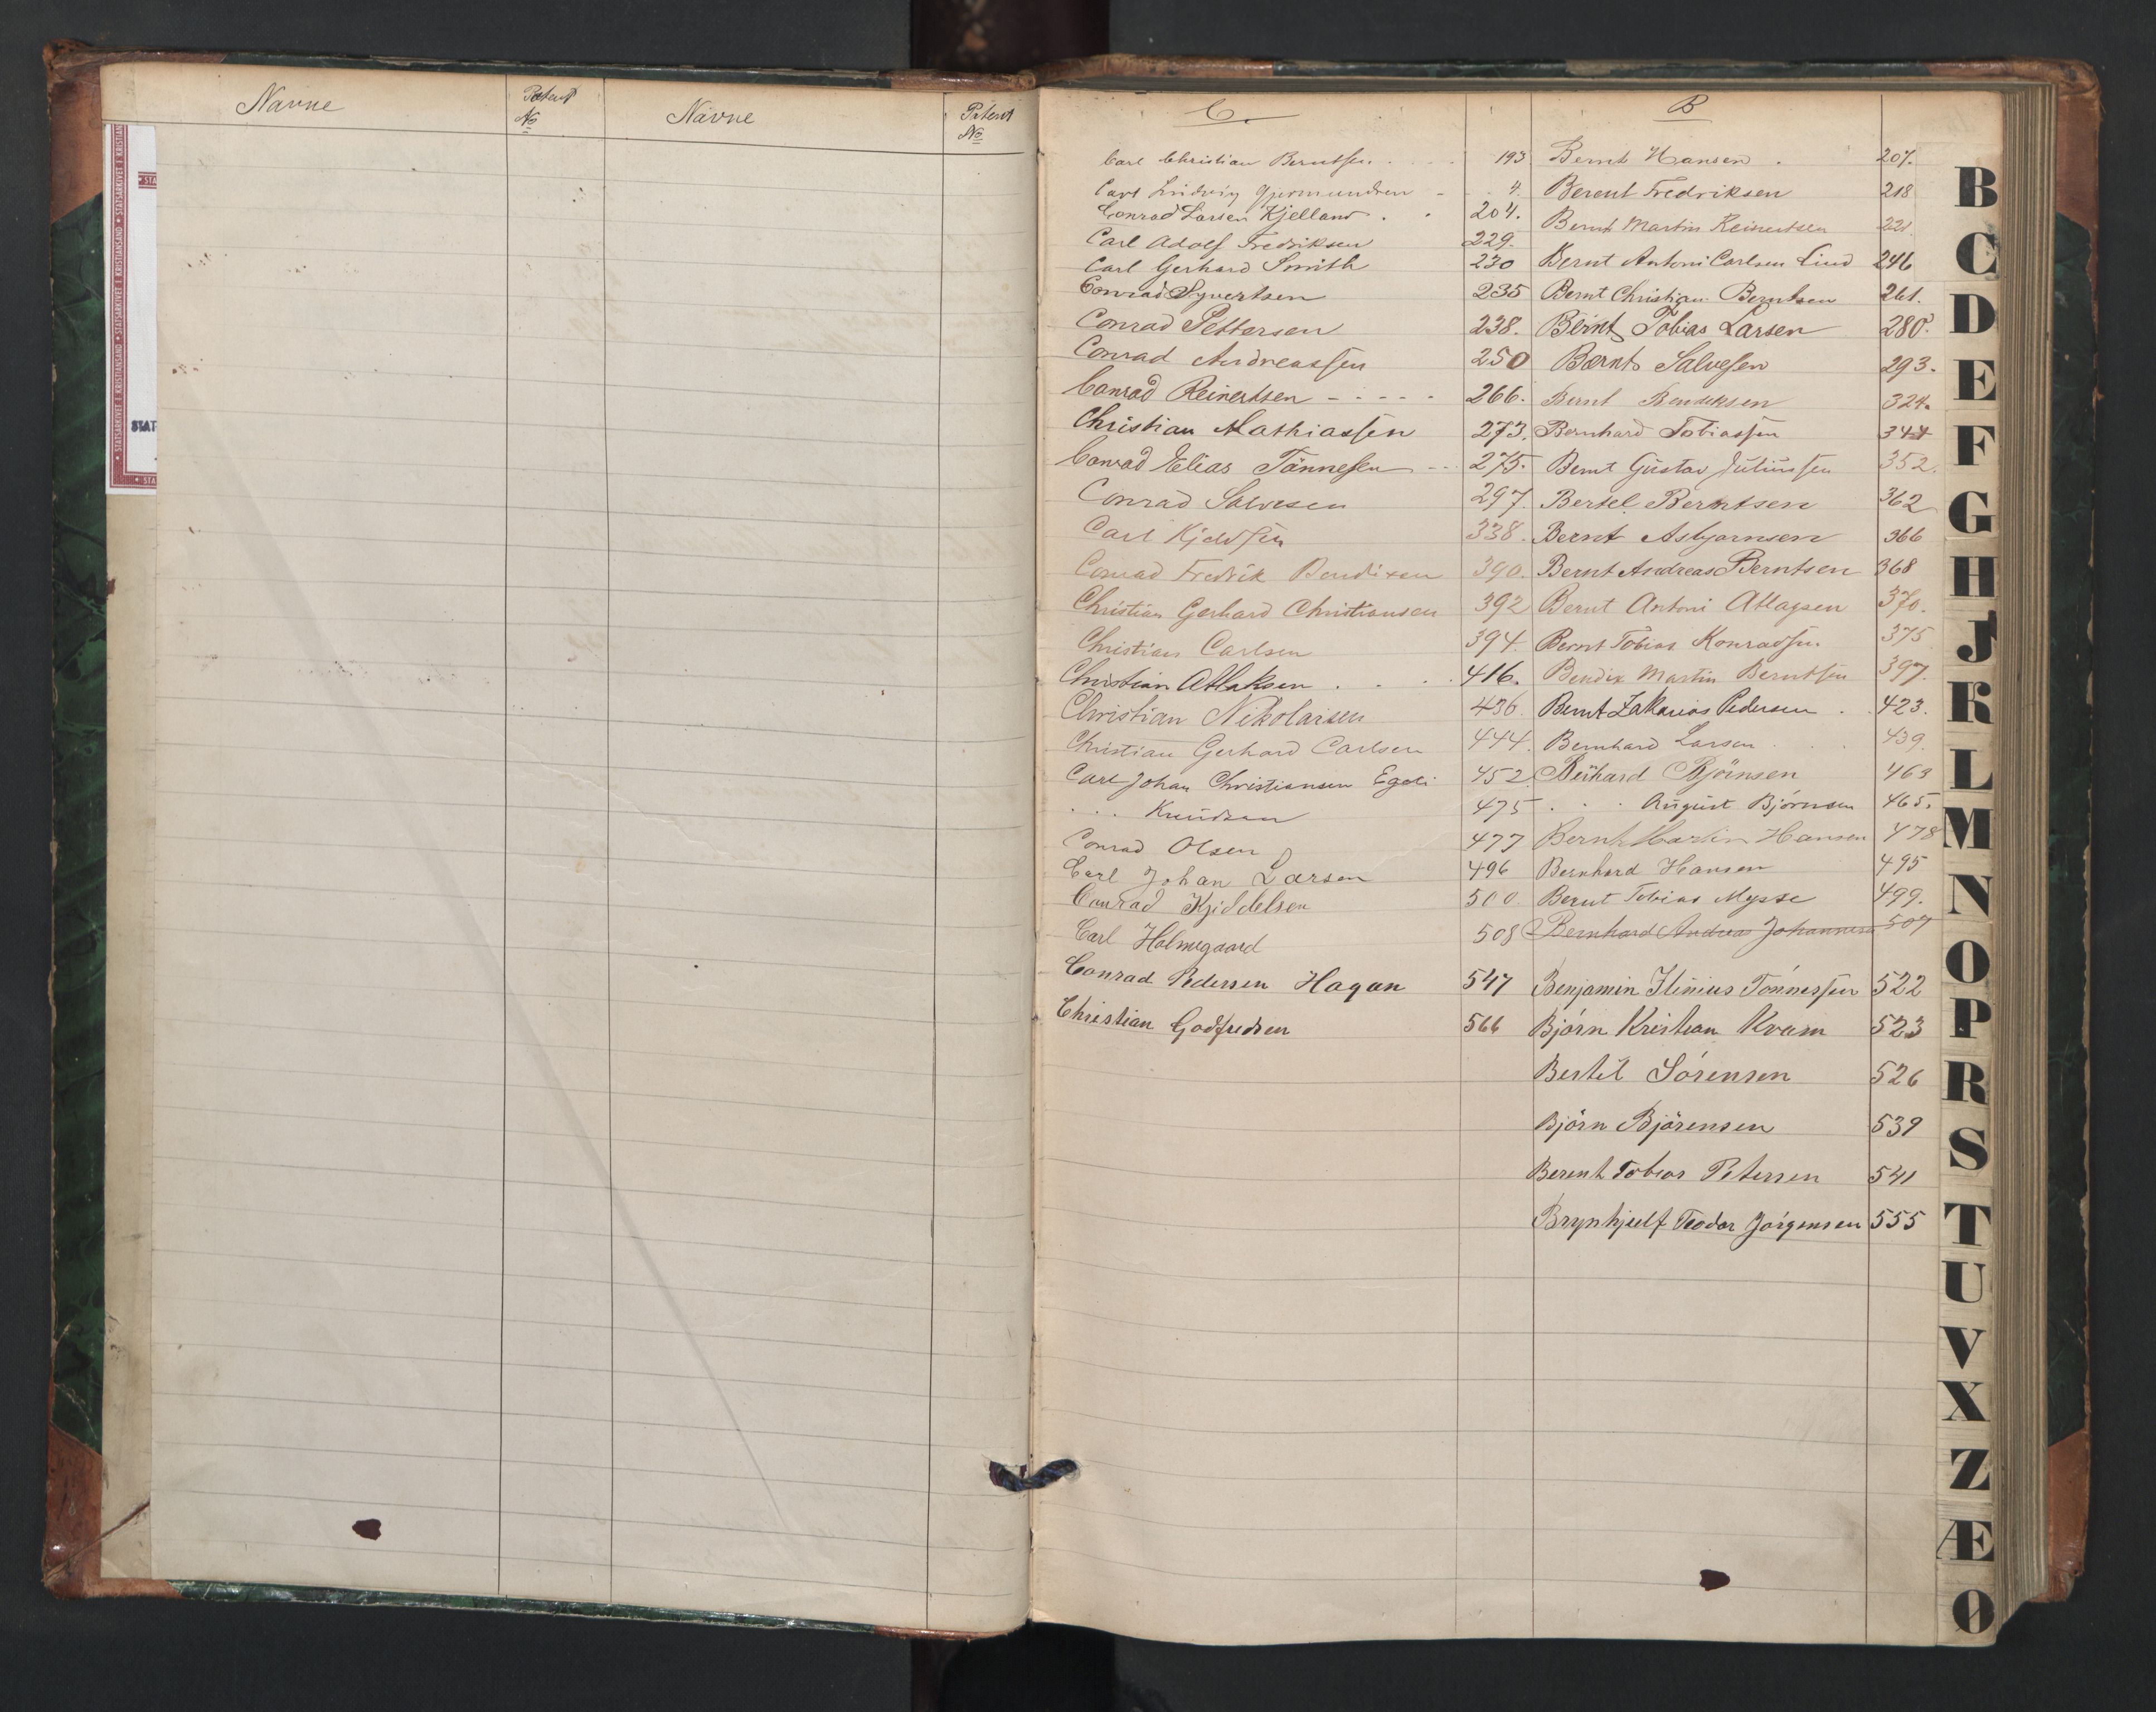 Navne
Patent
No
Navne
Patent
No
STATSARKIVET I KRISTIANSAND
C.
Carl Christian Berntsen 193
Carl Ludvig Gjermundsen 4.
Conrad Larsen Kjelland 204.
Carl Adolf Fredriksen 229.
Carl Gerhard Smith 230
Conrad Syvertsen 235
Conrad Pettersen 238.
Conrad Andreassen 250
Conrad Reinertsen - - - - - 266.
Christian Mathiassen 273.
Conrad Elias Tönnesen - - 275.
Conrad Salvesen 297.
Carl Kjeldsen 338.
Conrad Fredrik Bendixen 390.
Christian Gerhard Christiansen 392
Christian Carlsen 394.
Christian Atlaksen . . . 416.
Christian Nikolaisen 436.
Christian Gerhard Carlsen 444.
Carl Johan Christiansen Egeli 452
. . . Knudsen 475
Conrad Olsen 477
Carl Johan Larsen 496
Conrad Kjiddelsen 500
Carl Holmegaard 508
Conrad Pedersen Hagan 547
Christian Godfredsen 566
B
Bernt Hansen . 207.
Berent Fredriksen 218
Bernt Martin Reinertsen 221
Bernt Antoni Carlsen Lind 246
Bernt Christian Berntsen 261.
Bernt Tobias Larsen 280.
Bernt Salvesen 293.
Bernt Bendiksen 324.
Bernhard Tobiassen 344
Bernt Gustav Juliussen 352.
Bertel Berntsen 362
Bernt Asbjørnsen 366
Bernt Andreas Berntsen 368
Bernt Antoni Atlagsen 370.
Bernt Tobias Konradsen 375
Bendix Martin Berntsen 397.
Bernt Zakarias Pedersen . . 423.
Bernhard Larsen 439.
Berhard Björnsen 463
. . . August Björnsen 465.
Bernt Martin Hansen 478
Bernhard Hansen 495
Bernt Tobias Mysse 499.
Bernhard Andreas Johannesen 507
Benjamin Tönnessen 522
Björn Kristian Kvam 523
Bertil Sörensen 526
Björn Björensen 539
Berent Tobias Petersen 541
Brynhjulf Teodor Jörgensen 555
B
C
D
E
F
G
H
J
K
L
M
N
O
P
R
S
T
U
V
X
Z
Æ
Ø